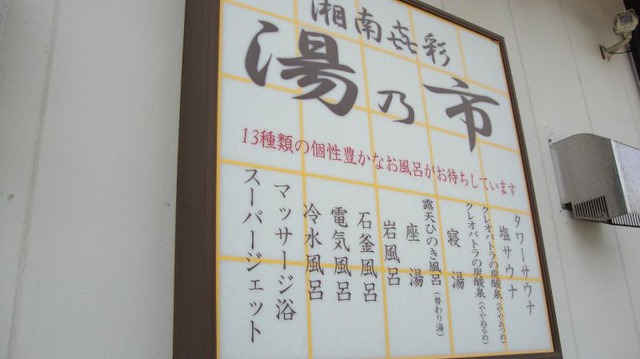 湘南喜彩
湯乃市
13種類の個性豊かなお風呂がお待ちしています
タワーサウナ
塩サウナ
クレオパトラの炭酸泉(ややあつめ)
クレオパトラの炭酸泉(ややぬるめ)
寝湯
露天ひのき風呂(替わり湯)
座湯
岩風呂
石釜風呂
電気風呂
冷水風呂
マッサージ浴
スーパージェット